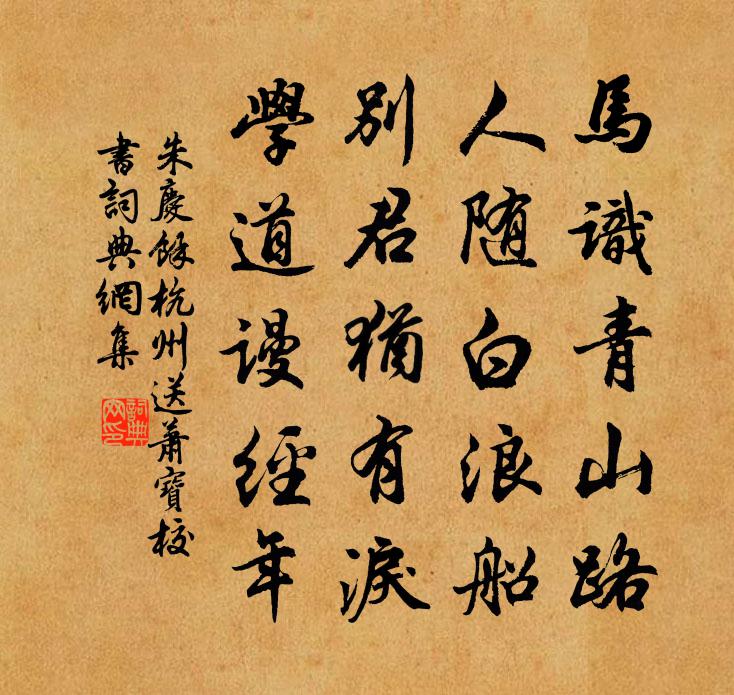 馬識青山路
人随白浪船
別君猶有淚
學道謾經年
朱慶餘杭州送蕭寶校
書詞典網集
詞典
网印